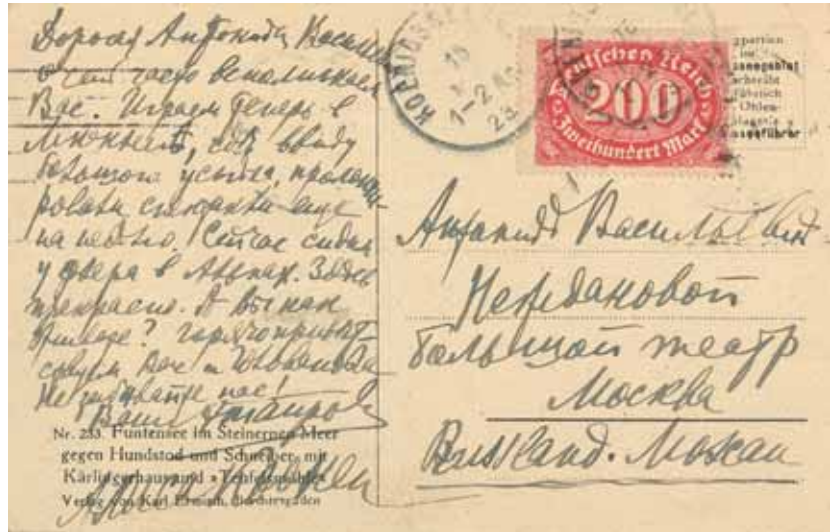 Дорогая Антонида Васильевна
часто вспоминаем
Вас. Играем теперь в
Мюнхене, где ввиду
большого успеха, пролонги-
ровали спектакли еще
на неделю. Сейчас сидим
у озера в Альпах. Здесь
прекрасно. А Вы как
живете? Горячо приветст-
вуем Вас и
Не забывайте нас!
Ваш Таиров
Алиса Коонен
Nr. 233. Funtensee im Steinernen Meer
gegen Hundstod und Schneiber mit
Kärlingerhaus und »Teufelsmühle«
Verlag von Karl Ermisch, Berchtesgaden
1-2
23
Deutsches Reich
200
Zweihundert Mark
Антониде Васильевне
Неждановой
Большой театр
Москва
Russland. Moskau